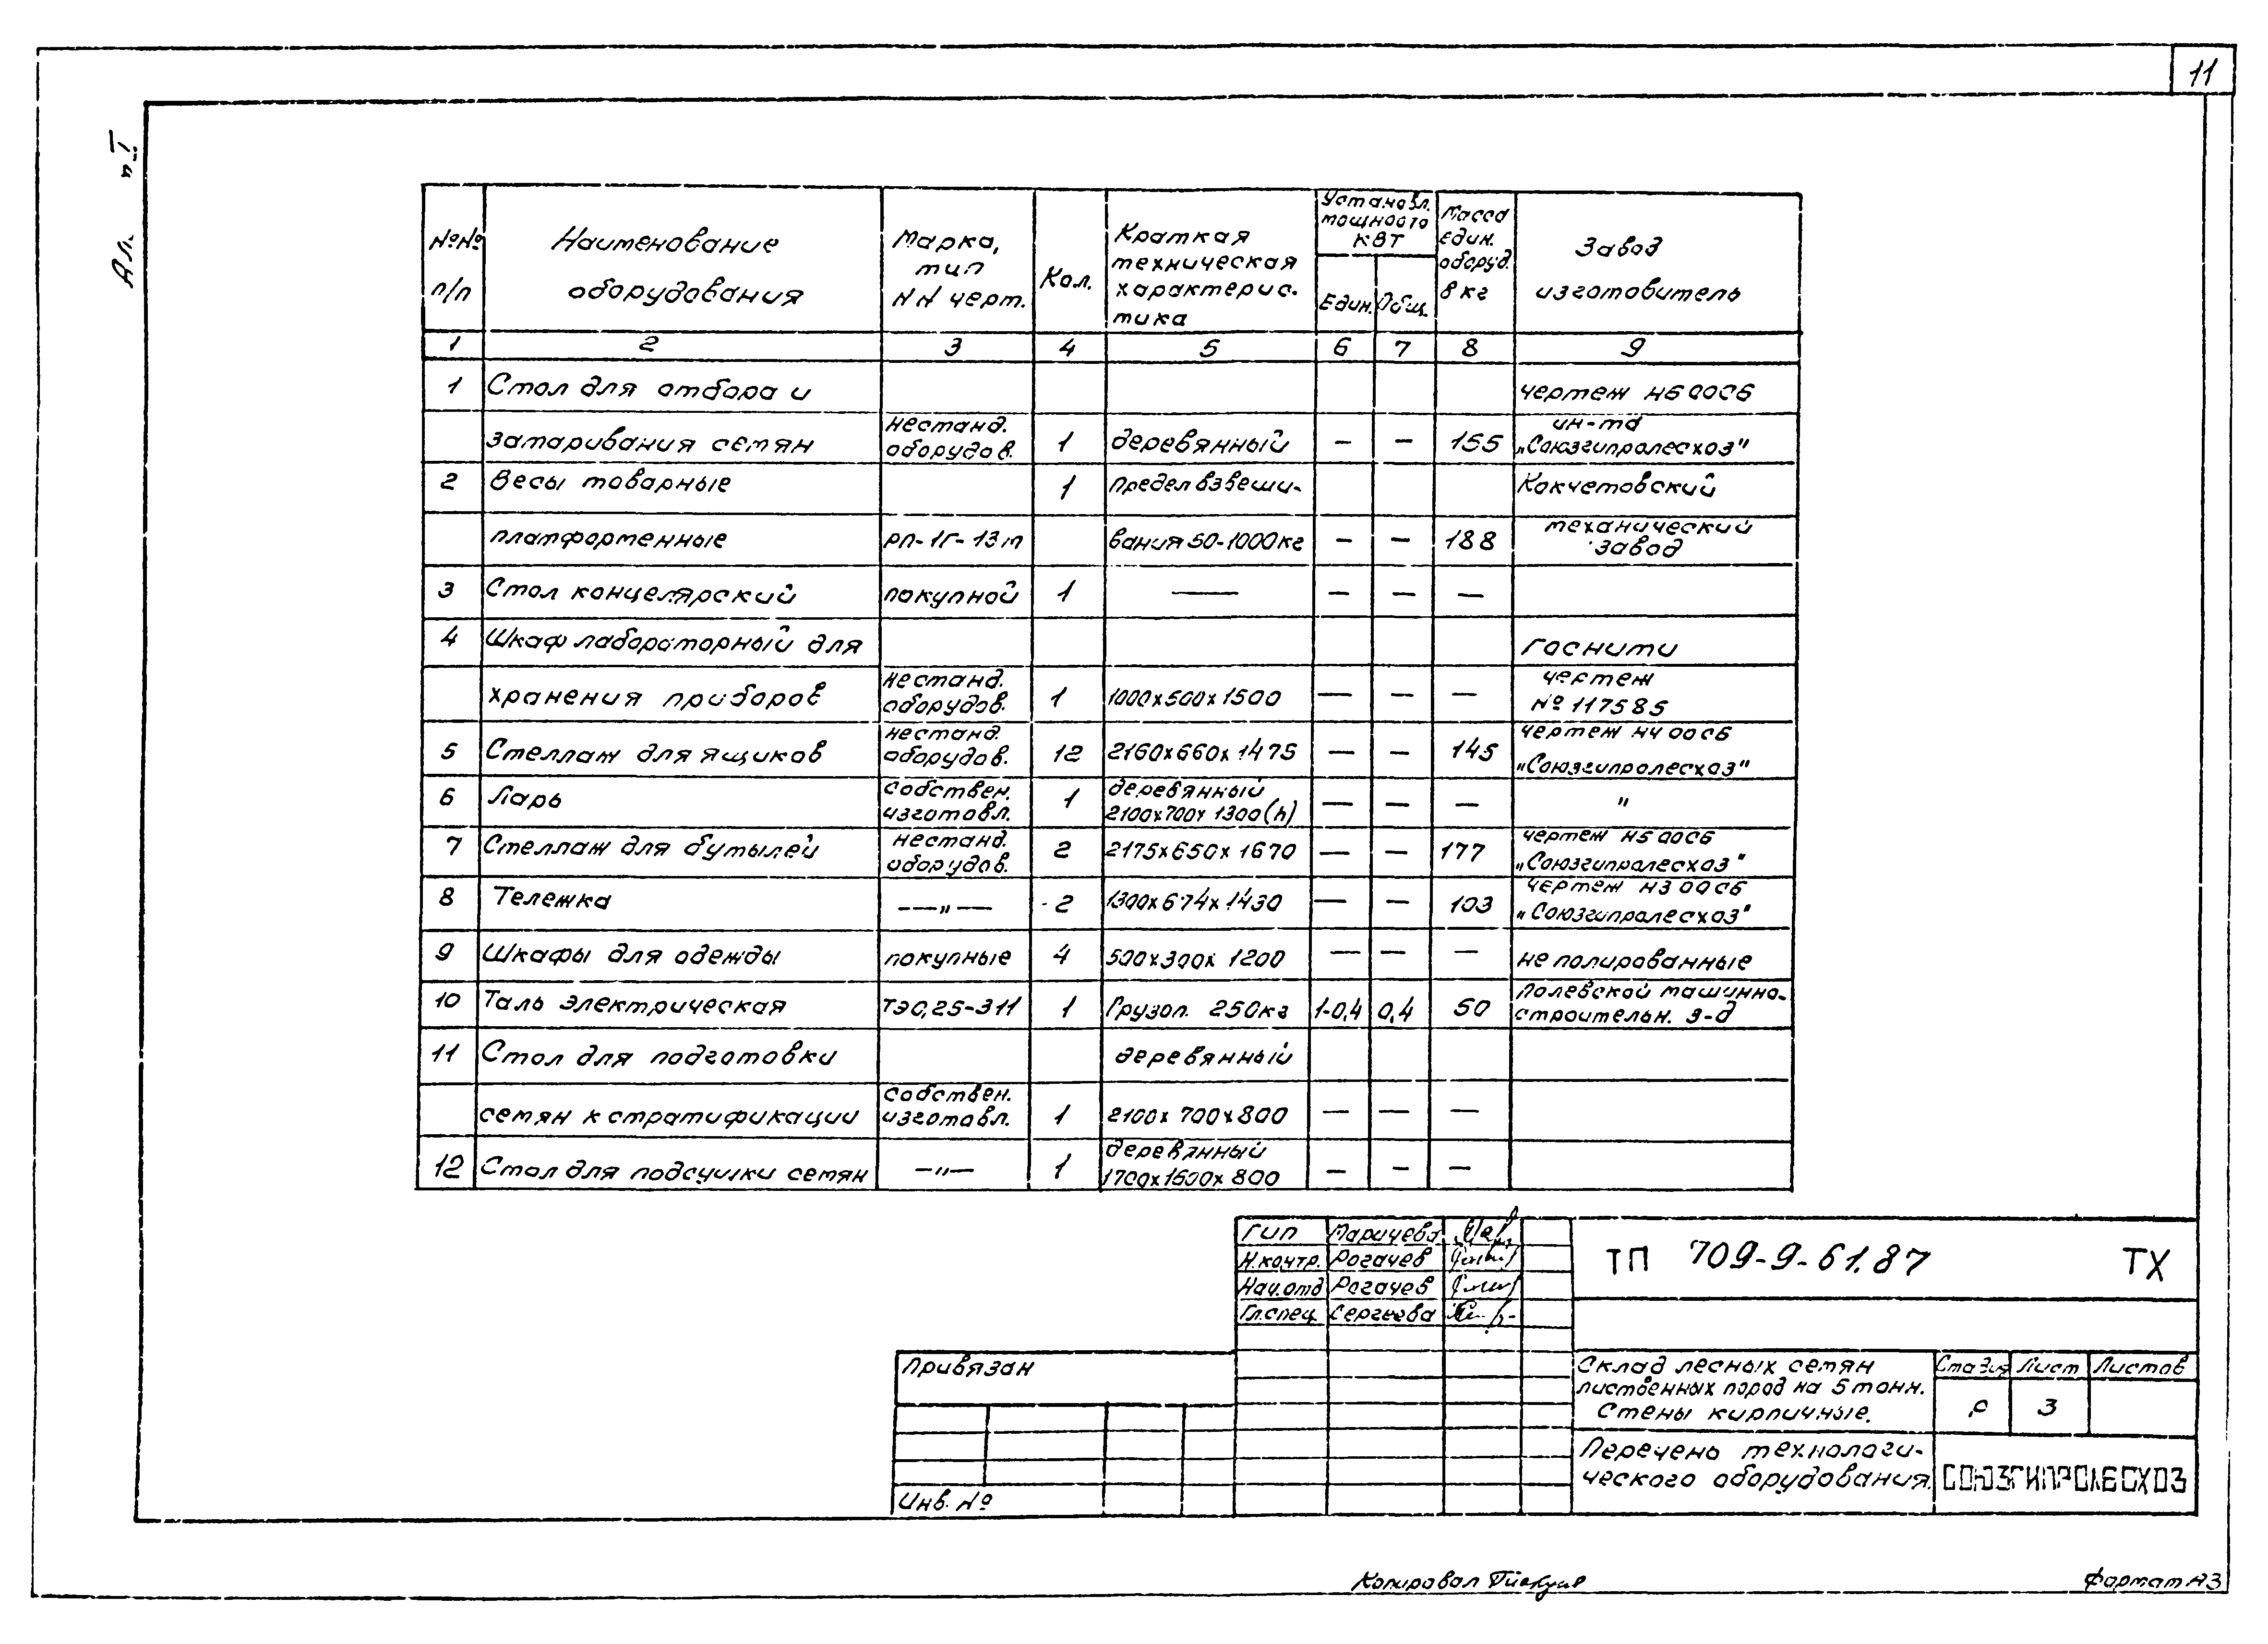 11
Ал. п.I
№№ п/п
Наименование оборудования
Марка, тип NN черт.
Кол.
Краткая техническая характерис-тика
Установл. мощность КВТ
Един. Общ.
Масса един. оборуд. в кг
Завод изготовитель
1 2 3 4 5 6 7 8 9
1 Стол для отбора и чертеж Н6 00СБ
затаривания семян нестанд. оборудов. 1 деревянный — — 155 ин-та „Союзгипролесхоз"
2 Весы товарные 1 предел взвеши- Кокчетовский
платформенные РП-1Г-13м вания 50-1000кг — — 188 механический завод
3 Стол концелярский покупной 1 — — — —
4 Шкаф лабораторный для ГОСНИТИ
хранения приборов нестанд. оборудов. 1 1000х500х1500 — — — чертеж № 117585
5 Стеллаж для ящиков нестанд. оборудов. 12 2160х660х1475 — — 145 чертеж Н4 00СБ „Союзгипролесхоз"
6 Ларь собствен. изготовл. 1 деревянный 2100х700х1300(h) — — — "
7 Стеллаж для бутылей нестанд. оборудов. 2 2175х650х1670 — — 177 чертеж Н5 00СБ „Союзгипролесхоз"
8 Тележка —„— 2 1300х674х1430 — — 103 чертеж Н3 00СБ „Союзгипролесхоз"
9 Шкафы для одежды покупные 4 500х300х1200 — — — не полированные
10 Таль электрическая ТЭ0,25-311 1 Грузоп. 250кг 1-0,4 0,4 50 Полевской машинно-строительн. з-д
11 Стол для подготовки деревянный
семян к стратификации собствен. изготовл. 1 2100х700х800 — — —
12 Стол для подсушки семян —„— 1 деревянный 1700х1600х800 — — —
ГИП Маричева
Н.контр. Рогачев
Нач.отд Рогачев
Гл.спец. Сергеева
ТП 709-9-61.87 ТХ
Привязан
Инв. №
Склад лесных семян
лиственных пород на 5 тонн.
Стены кирпичные.
Стадия Лист Листов
Р 3
Перечень технологи-
ческого оборудования.
СОЮЗГИПРОЛЕСХОЗ
Копировал
Формат А3